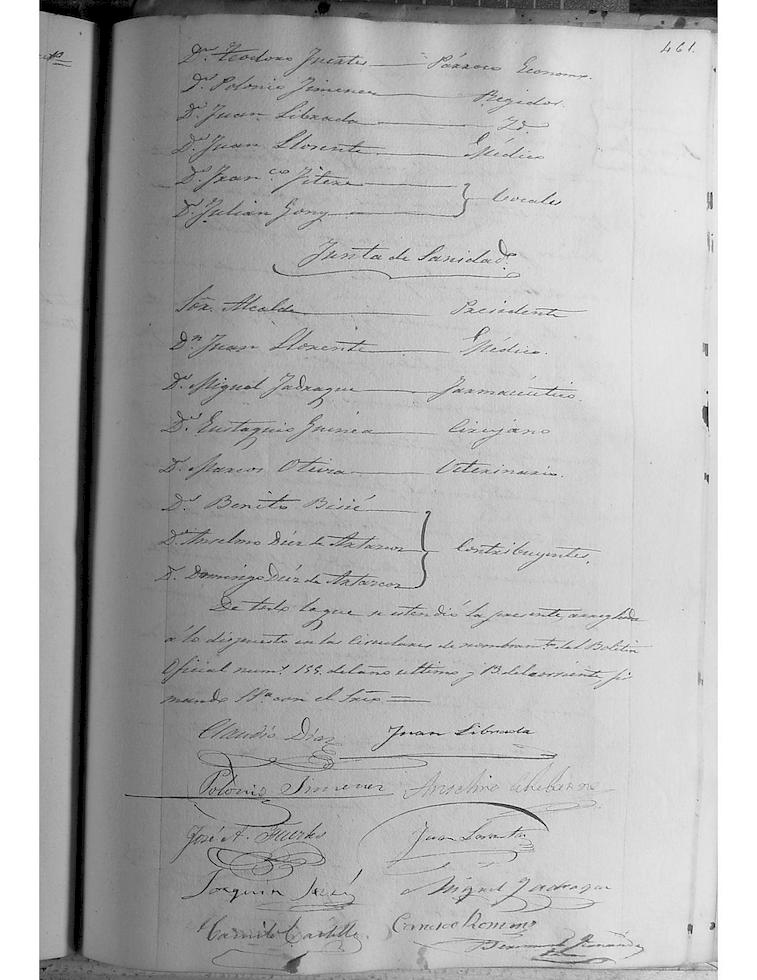 461.
Dn. Teodoro Fuertes — Párroco Economo.
Dn. Polonio Jimenez — Regidor.
Dn. Juan Librada — Id.
Dn. Juan Llorente — Médico
Dn. Franco.
Dn. Julian — Vocales
Junta de Sanidad.
Sor. Alcalde — Presidente
Dn. Juan Llorente — Médico.
Dn. Miguel Jadraque — Farmacéutico.
Dn. Eustaquio Guinea — Cirujano
Dn. Marcos Oteiza — Veterinario.
Dn. Benito
Dn. Anselmo Diez de — Contribuyentes.
Dn. Domingo Diez de
De todo lo que se estendió la presente, arreglada
á lo dispuesto en las Circulares de nombramto. del Boletin
Oficial num. 155 del año ultimo y 13 del corriente, fir
mando Sª con el Srio =
Claudio Diaz Juan Librada
Polonio Jimenez Anselmo
José A. Fuertes Juan Llorente
Joaquin Miguel Jadraque
Camilo Castillo Roman